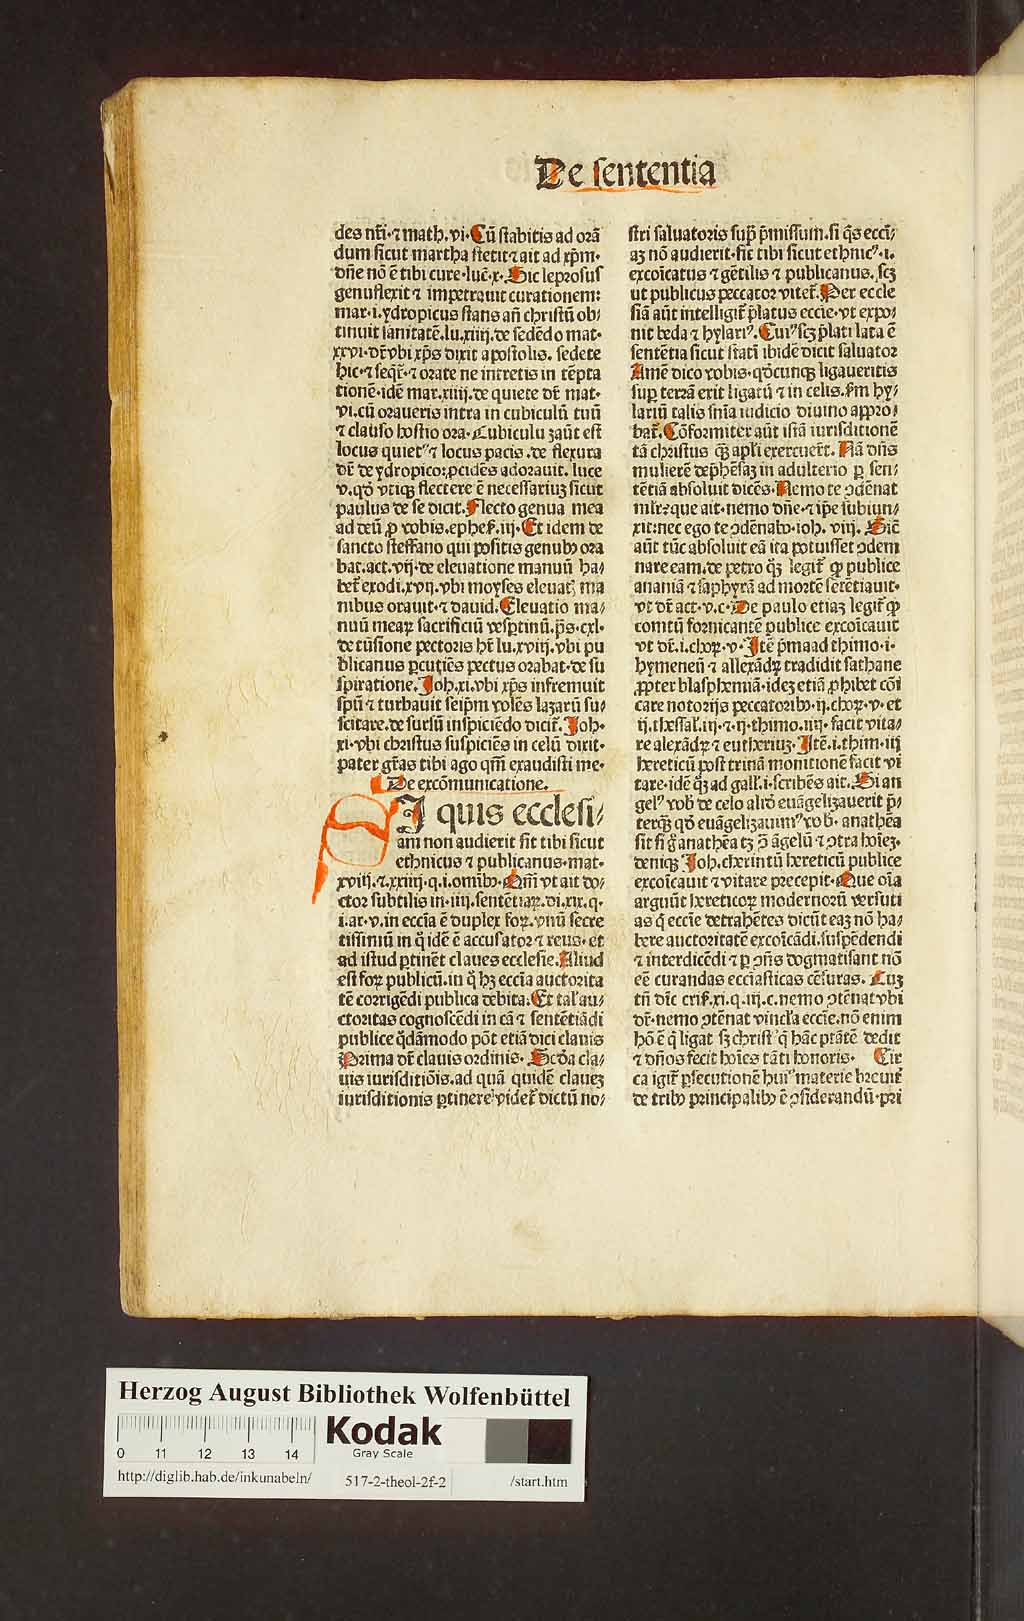 De sententia
des nr̄i·⁊ math.vi·Cū stabitis ad orā
dum sicut martha stetit ⁊ ait ad xp̄m·
dn̄e nō ē tibi cure·luc̄·x·Sic leprosus
genuflexit ⁊ impetrauit curationem:
mar·i.ydropicus stans an̄ christū ob⸗
tinuit sanitatē.lu.xiiij.de sedēdo mat·
xxvi·dr̄ vbi xp̄s dixit apostolis. sedete
hic·⁊ seqr̄·⁊ orate ne intretis in tēpta
tionē·idē mar.xiiij.de quiete dr̄ mat·
vi.cū oraueris intra in cubiculū tuū
⁊ clauso hostio ora·Cubiculuʒ aūt est
locus quietꝰ ⁊ locus pacis.de flexura
dr̄ de ydropico:ꝓcidēs adorauit. luce
v.qd̄ vtiqꝫ flectere ē necessariuʒ sicut
paulus de se dicit.Flecto genua mea
ad deū ꝓ vobis.ephes̄.iij·Et idem de
sancto steffano qui positis genubꝫ ora
bat.act.vij·de eleuatione manuū ha⸗
bet̄ exodi.xvij.vbi moyses eleuatꝭ ma
nibus orauit·⁊ dauid.Eleuatio ma⸗
nuū mearꝝ sacrificiū vesꝑtinū.ps̄·cxl·
de tūsione pectoris hr̄ lu.xviij.vbi pu
blicanus ꝑcutiēs pectus orabat·de su
spiratione.Joh.xi.vbi xp̄s infremuit
spū ⁊ turbauit seip̄m volēs lazarū su⸗
scitare.de sursū inspiciēdo dicit̄.Joh·
xi·vbi christus suspiciēs in celū dixit·
pater gr̄as tibi ago qm̄ exaudisti me·
De excōmunicatione.
SI quis ecclesi⸗
am non audierit sit tibi sicut
ethnicus ⁊ publicanus·mat·
xviij.⁊.xxiiij·q.i.omībꝫ·Qm̄ vt ait do⸗
ctor subtilis in·iiij.sentētiarꝝ.di.xix.q·
i.ar·v.in ecc̄ia ē duplex forꝝ.vnū secre
tissimū in q̊ idē ē accusator ⁊ reus·et
ad istud ꝑtinēt claues ecclesie.Aliud
est forꝝ publicū.in q̊ hꝫ ecc̄ia auctorita
tē corrigēdi publica debita.Et tal̄ au⸗
ctoritas cognoscēdi in cā ⁊ sentētiādi
publice q̄dāmodo pōt etiā dici clauis
Prima dr̄ clauis ordinis·Scd̄a cla⸗
uis iurisditiōis.ad quā quidē claueʒ
iurisditionis ꝑtinere videt̄ dictū no⸗
stri saluatoris sup̄ p̄missum.si q̄s ecc̄i⸗
aʒ nō audierit·sit tibi sicut ethnicꝰ·i·
excoīcatus ⁊ gētilis ⁊ publicanus.sꝫ
ut publicus peccator vitet̄.Per eccle
siā aūt intelligit̄ p̄latus ecc̄ie·vt expo⸗
nit beda ⁊ hylariꝰ.Cuiꝰ sꝫ p̄lati lata ē
sentētia sicut statū ibidē dicit saluator
Amē dico vobis·qd̄cunqꝫ ligaueritis
suꝑ terrā erit ligatū ⁊ in celis.sm̄ hy⸗
lariū talis sn̄ia iudicio diuino appro⸗
bat̄.Cōformiter aūt istā iurisditionē
tā christus qꝫ apl̄i exercuer̄t.Nā dn̄s
mulierē dep̄hēsaʒ in adulterio ꝑ sen⸗
tētiā absoluit dicēs.Nemo te ꝯdēnat
ml̄r:que ait·nemo dn̄e·⁊ ip̄e subiun⸗
xit:nec ego te ꝯdēnabo·ioh. viij. Sic̄
aūt tūc absoluit eā ita potuisset ꝯdem
nare eam.de petro qꝫ legit̄ ꝙ publice
ananiā ⁊ saphyrā ad mortē sētētiauit·
vt dr̄ act·v.c·De paulo etiaʒ legit̄ ꝙ
corītū fornicantē publice excoīcauit
vt dr̄.i.chorꝝ·v·Itē p̄ma ad thimo·i·
hymeneū ⁊ allexādrꝝ tradidit sathane
ꝓpter blasphemiā·ideʒ etiā ꝓhibet cōi
care notorijs peccatoribꝫ·ij.chorꝝ·v·et
ij.thessal̄.iij·⁊·ij·thimo.iiij·facit vita⸗
re alexādrꝝ ⁊ eutheriuʒ·Itē.i.thim·iij
hereticū post trinā monitionē facit vi
tare·idē qꝫ ad gall̄.i·scribēs ait.Si an
gelꝰ vobꝭ de celo alid̄ euāgelizauerit p̄⸗
terqꝫ qd̄ euāgelizauimꝰ vobꝭ·anathēa
sit si g̊ anathēa tꝫ ꝯ āgelū ⁊ ꝯtra hoīeʒ·
deniqꝫ Joh.cherintū hereticū publice
excoīcauit ⁊ vitare precepit·Que oīa
arguūt hereticorꝝ modernorū versuti
as q̊ ecc̄ie detrahētes dicūt eaʒ nō ha⸗
bere auctoritatē excoīcādi.suspēdendi
⁊ interdicēdi ⁊ ꝑ ꝯn̄s dogmatisant nō
eē curandas ecc̄iasticas cēsuras. Cuʒ
tn̄ dic̄ cris̄.xi.q.iij.c.nemo ꝯtēnat vbi
dr̄·nemo ꝯtēnat vincl̄a ecc̄ie.nō enim
hō ē q̊ ligat sꝫ christꝰ q̊ hāc p̄tātē dedit
⁊ dn̄os fecit hoīes tāti honoris· Cir
ca igit̄ ꝑsecutionē huiꝰ materie breuit̄
de tribꝫ principalibꝫ ē ꝯsiderandū·pri
Herzog August Bibliothek Wolfenbüttel
Kodak
Gray Scale
0 11 12 13 14
http://diglib.hab.de/inkunabeln/ 517-2-theol-2f-2 /start.htm